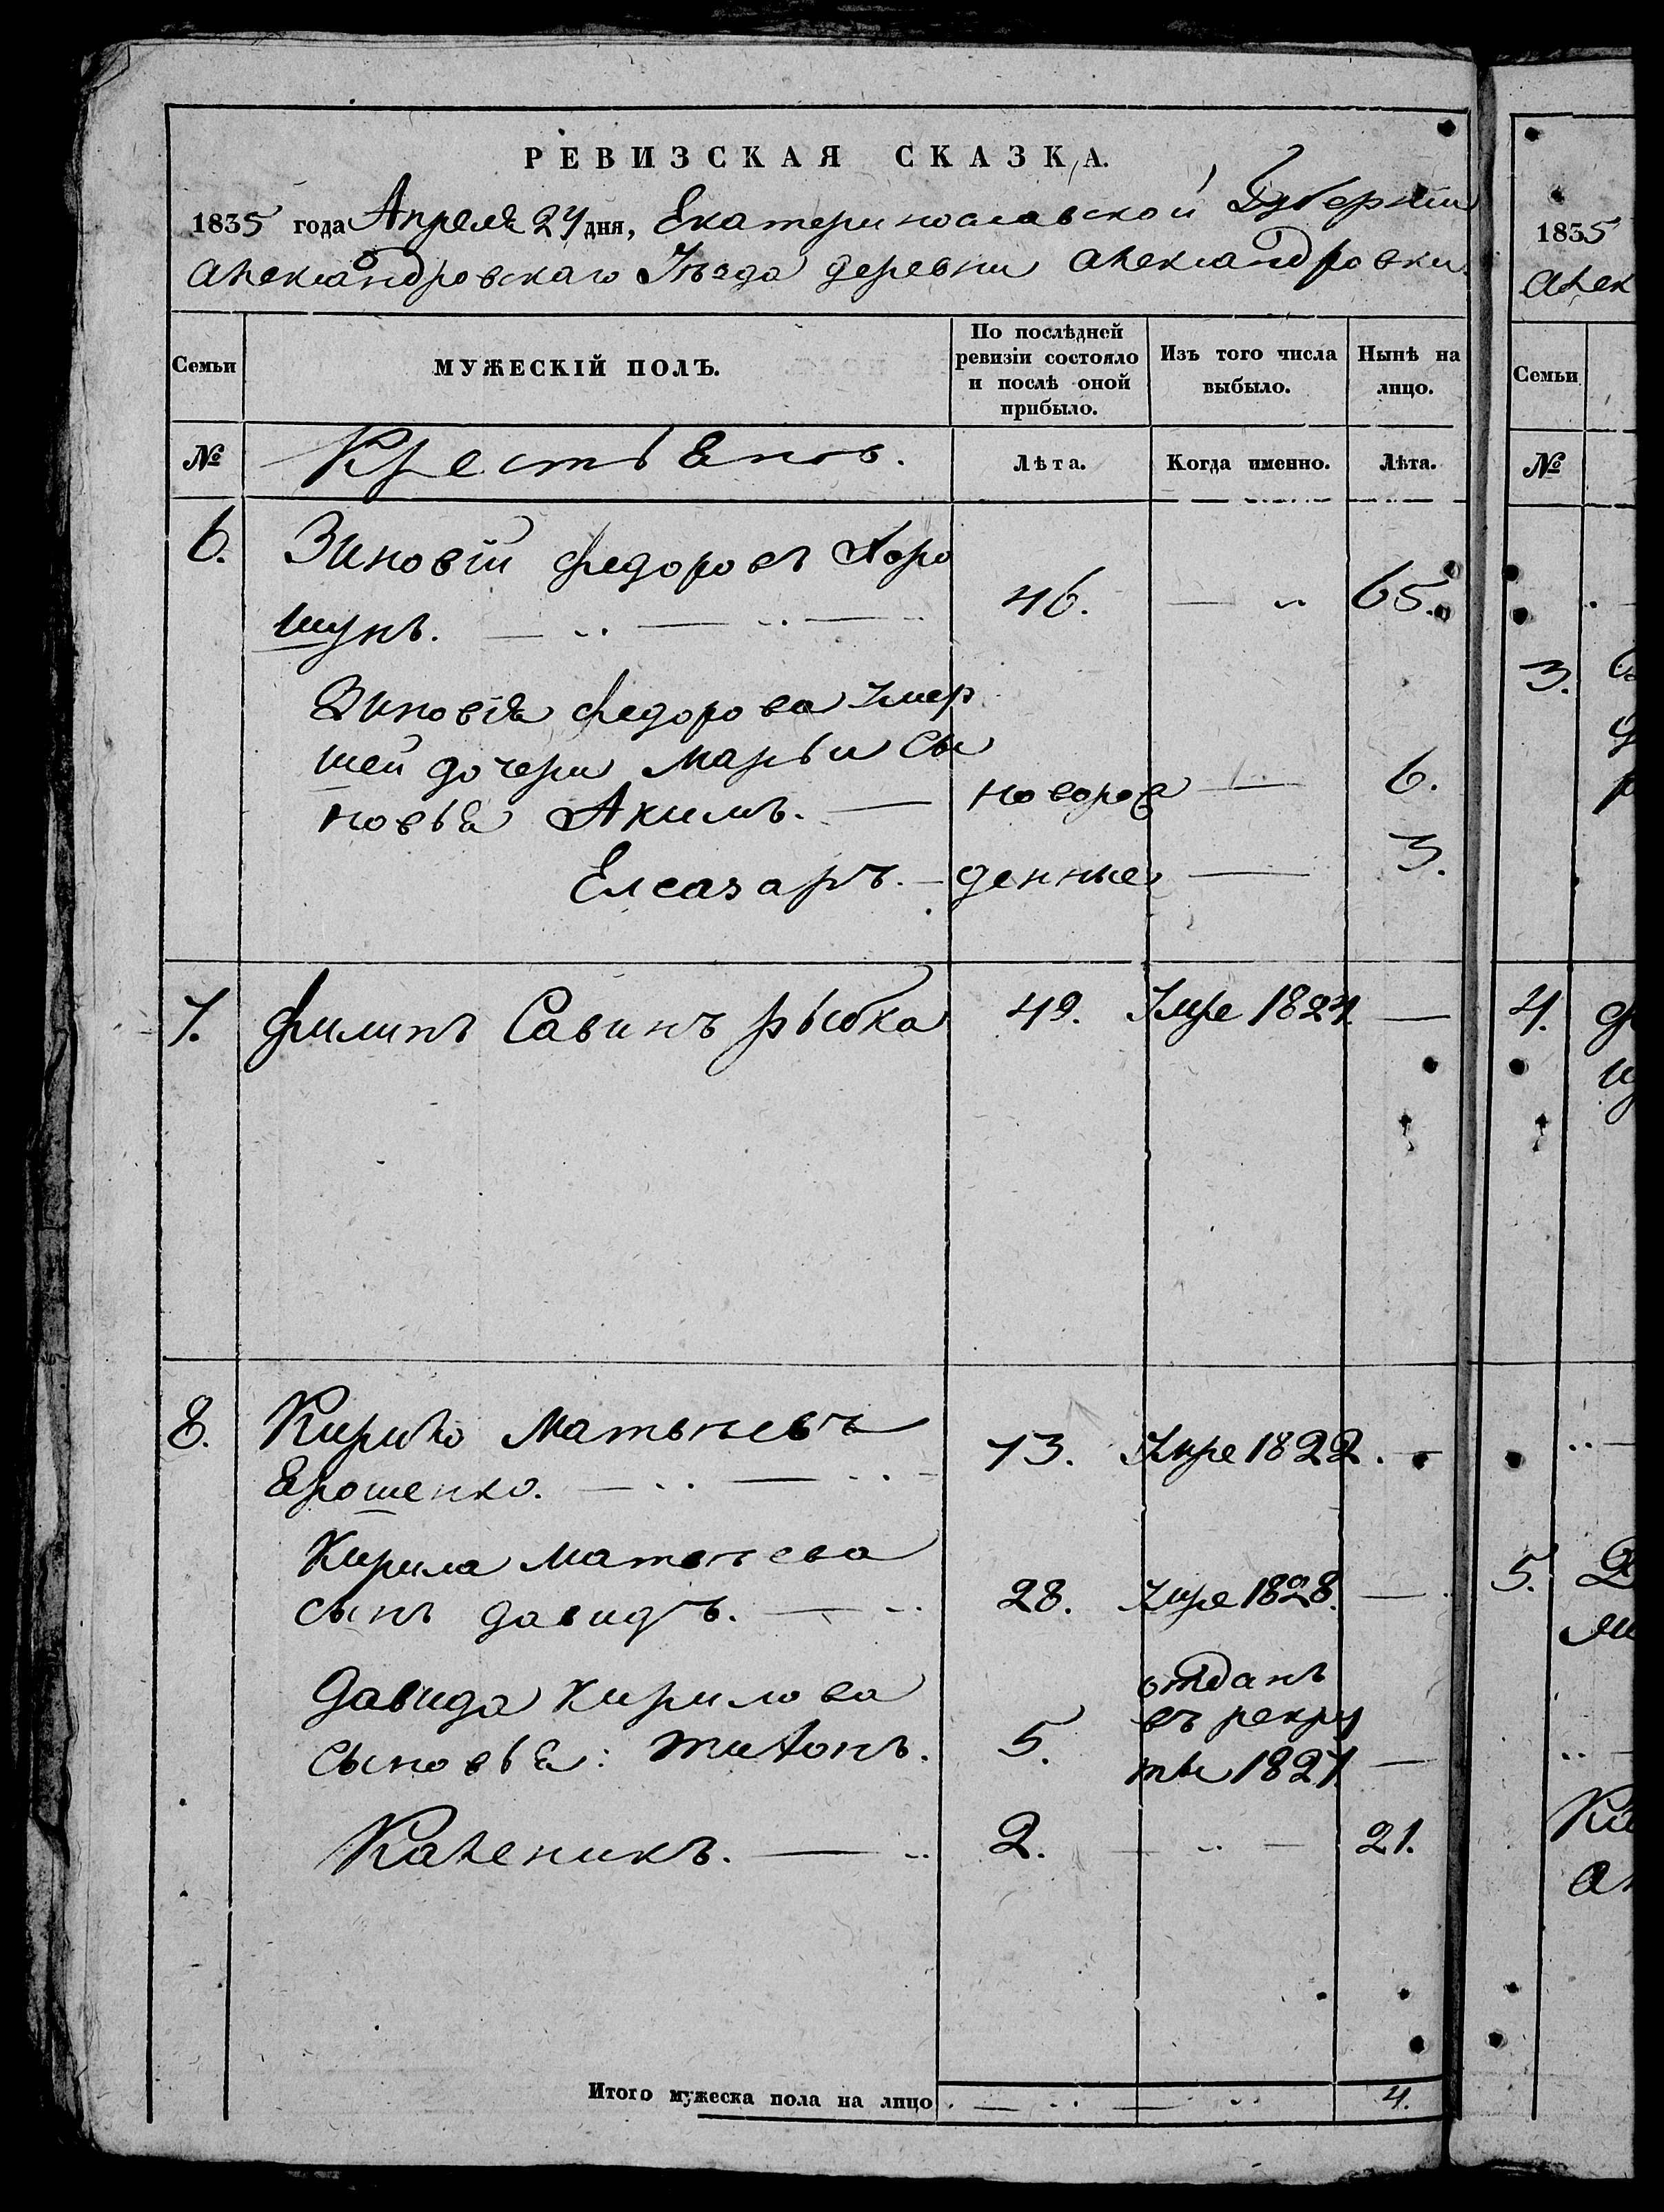 РЕВИЗСКАЯ СКАЗКА.
1835 года Апреля 24 дня, Екатеринославской Губернии
Александровскаго Уезда деревни Александровки
Семьи
МУЖЕСКІЙ ПОЛЪ.
По послѣдней ревизіи состояло и послѣ оной прибыло.
Изъ того числа выбыло.
Нынѣ на лицо.
№
Крестьянъ.
Лѣта.
Когда именно.
Лѣта.
6. Зиновій Федоровъ
шунъ. 46. 65.
Зиновія Федорова умер
шей дочери Марьи сы
новья Акимъ. новорож 6.
Елеазаръ. денные 3.
7. Филипъ Савинъ Рыбка 49. Умре 1824
8. Кирило Матвѣевъ
Ерошенко. 73. Умре 1822.
Кирила Матвѣева
сынъ Давидъ. 28. Умре 1828.
Давида Кирилова отданъ
сыновья: Тихонъ. 5. въ рекру
ты 1827
Каленикъ. 2. 21.
Итого мужеска пола на лицо 4.
1835
Алек
Семьи
№
3.
4.
5.